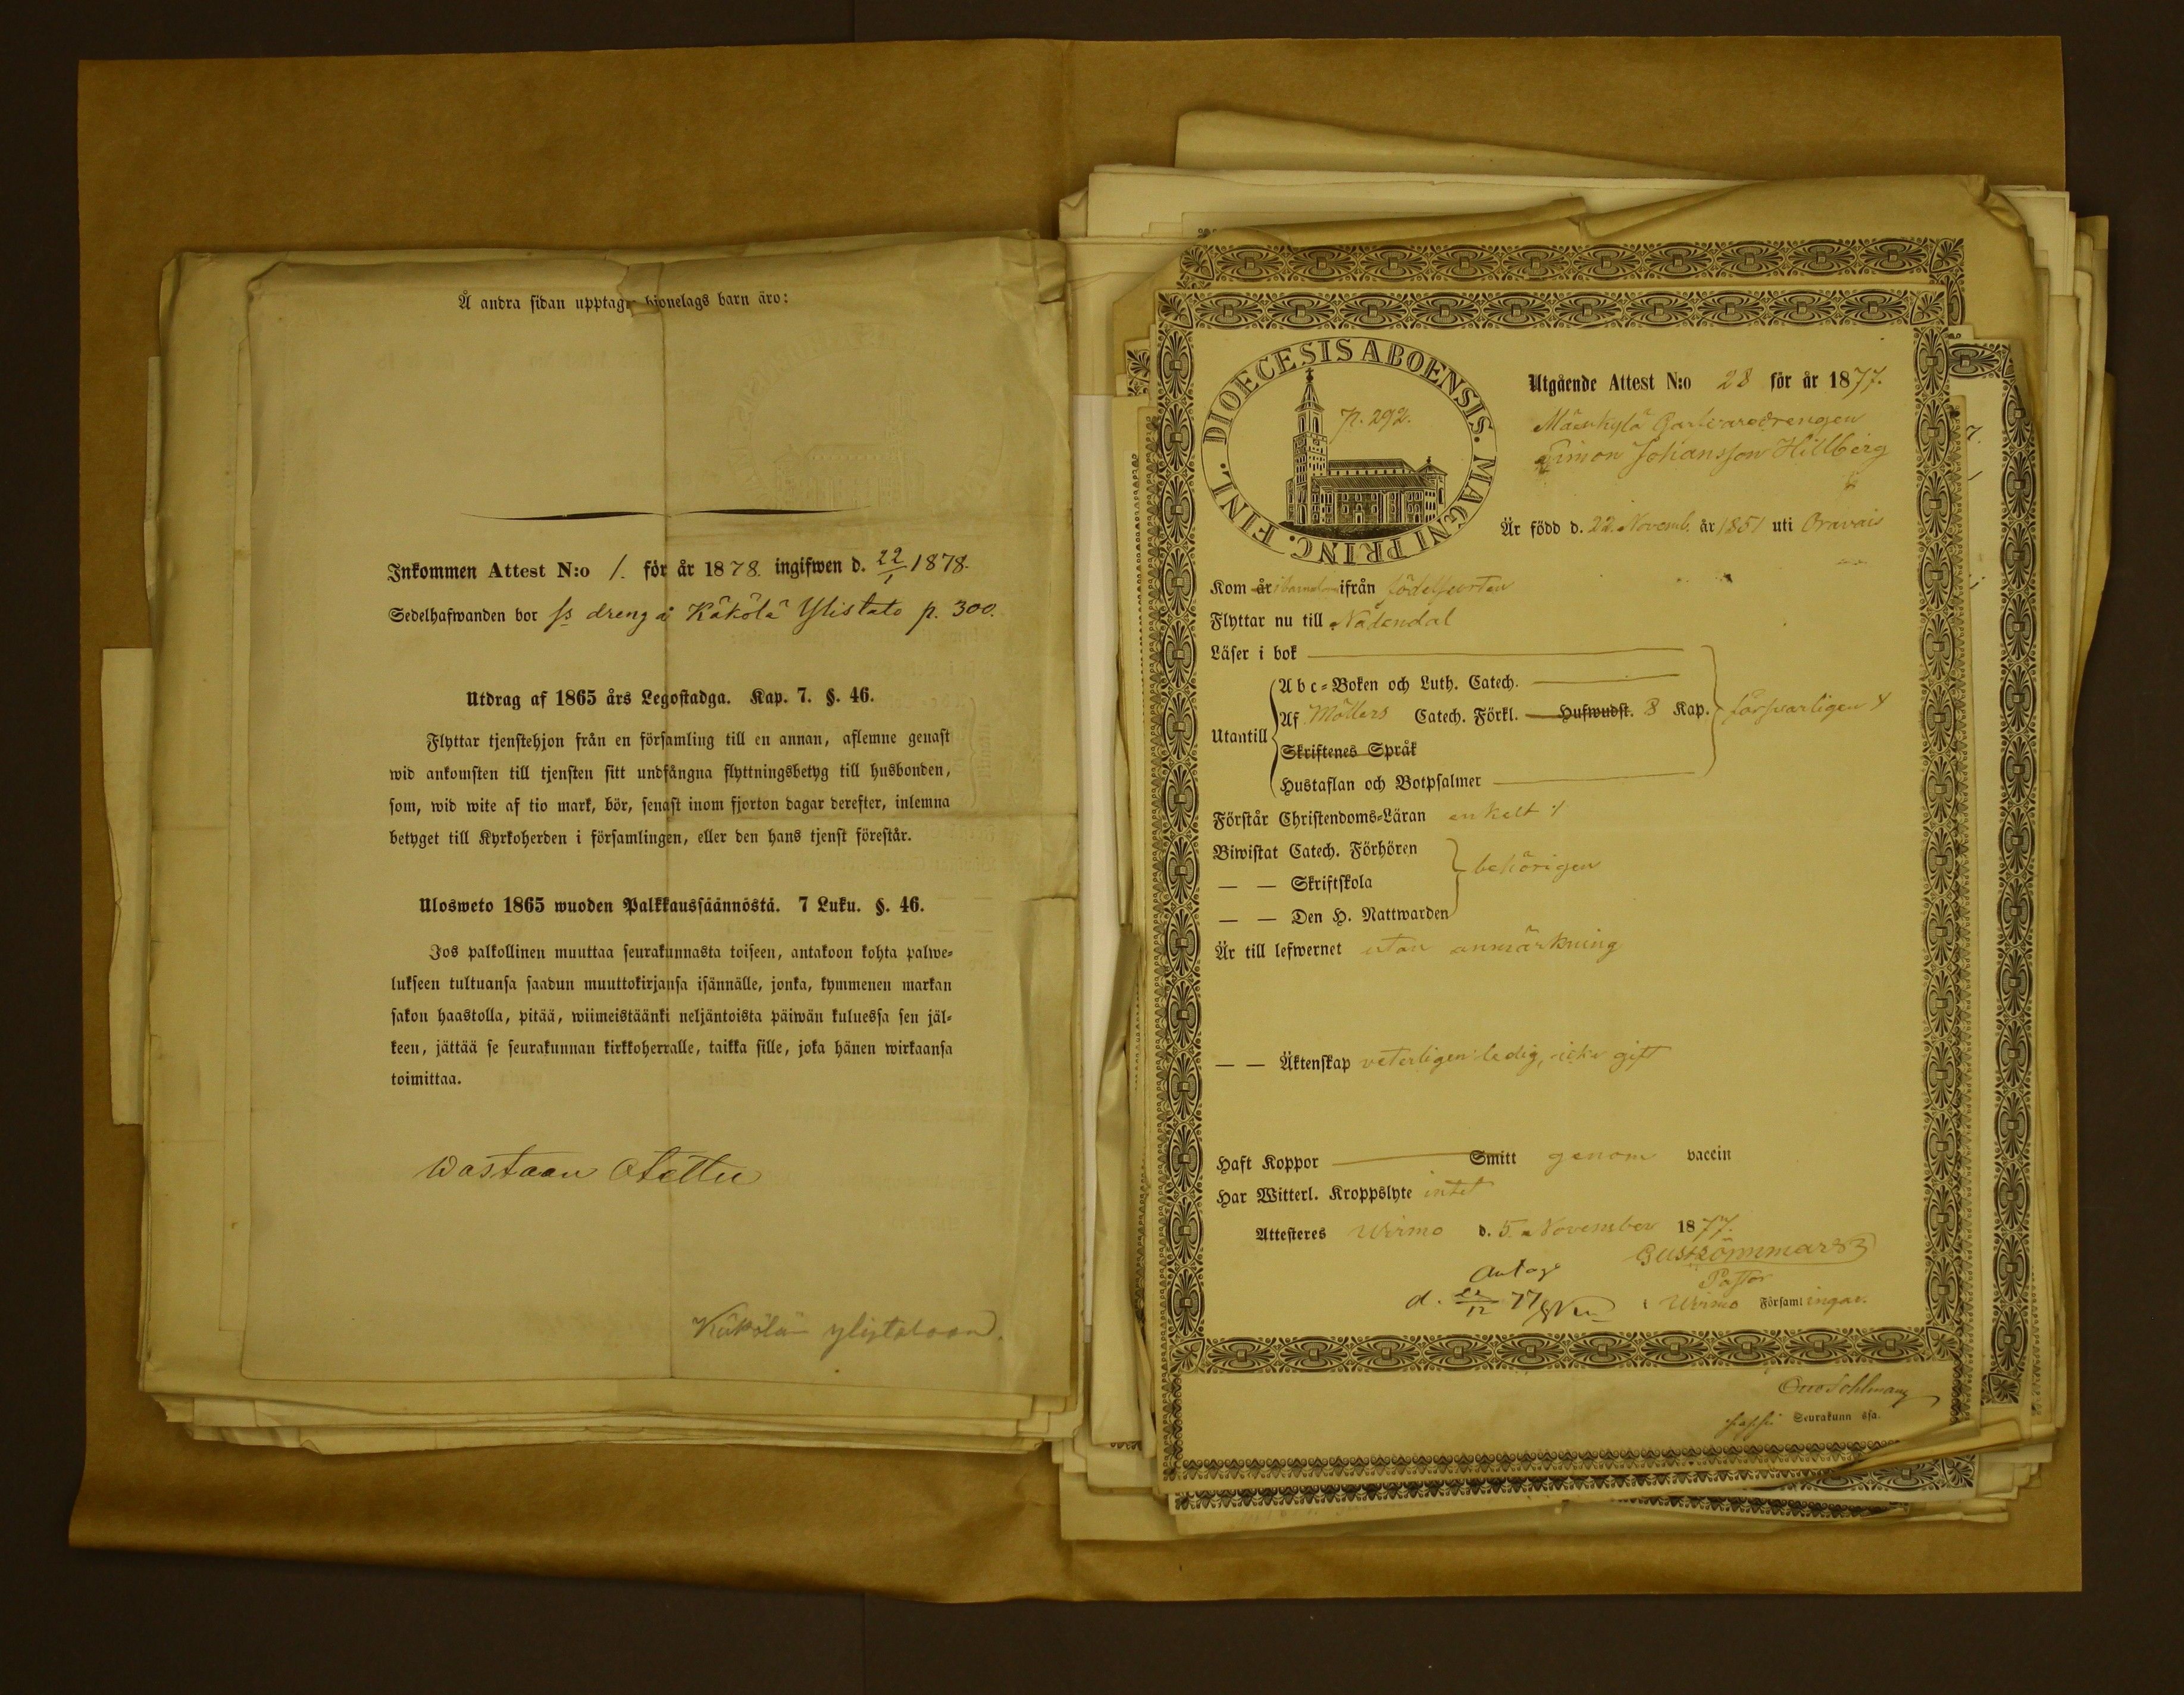 Å andra sidan upptagne hjonelags barn äro:
Inkommen Attest N:o 1. för år 1878. ingifwen d. 22/1 1878.
Sedelhafwanden bor ss dreng å Käkölä Ylistalo p. 300.
Utdrag af 1865 års Legostadga. Kap. 7. §. 46.
Flyttar tjenstehjon från en församling till en annan, aflemne genast
wid ankomsten till tjensten sitt undfångna flyttningsbetyg till husbonden,
som, wid wite af tio mark, bör, senast inom fjorton dagar derefter, inlemna
betyget till Kyrkoherden i församlingen, eller den hans tjenst förestår.
Ulosweto 1865 wuoden Palkkaussäännöstä. 7 Luku. §. 46.
Jos palkollinen muuttaa seurakunnasta toiseen, antakoon kohta palwe-
lukseen tultuansa saadun muuttokirjansa isännälle, jonka, kymmenen markan
sakon haastolla, pitää, wiimeistäänki neljäntoista päiwän kuluessa sen jäl-
keen, jättää se seurakunnan kirkkoherralle, taikka sille, joka hänen wirkaansa
toimittaa.
Wastaan Otettu
Käkölän ylistaloon.
DIOECESIS ABOENSIS. MAGNI PRINC. FINL.
p. 292.
Utgående Attest N:o 28 för år 1877.
Mäenkylä Garfwaredrengen
Simon Johansson Hillberg
Är född d. 22. Novemb. år 1851 uti Oravais
Kom år ifrån födelseorten
Flyttar nu till Nådendal
Läser i bok
Abc-Boken och Luth. Catech.
Utantill Af Möllers Catech. Förkl. Hufwudst. 8 Kap. försvarligen
Skriftenes Språk
Hustaflan och Botpsalmer
Förstår Christendoms-Läran enkelt
Biwistat Catech. Förhören
— — Skriftskola behörigen
— — Den H. Nattwarden
Är till lefwernet utan anmärkning
— — Äktenskap veterligen ledig, icke gift
Haft Koppor Smitt genom vaccin
Har Witterl. Kroppslyte intet
Attesteres Wirmo d. 5. November 1877.
Pastor
d. 22/12 77 i Wirmo Församlingar.
Seurakunnassa.